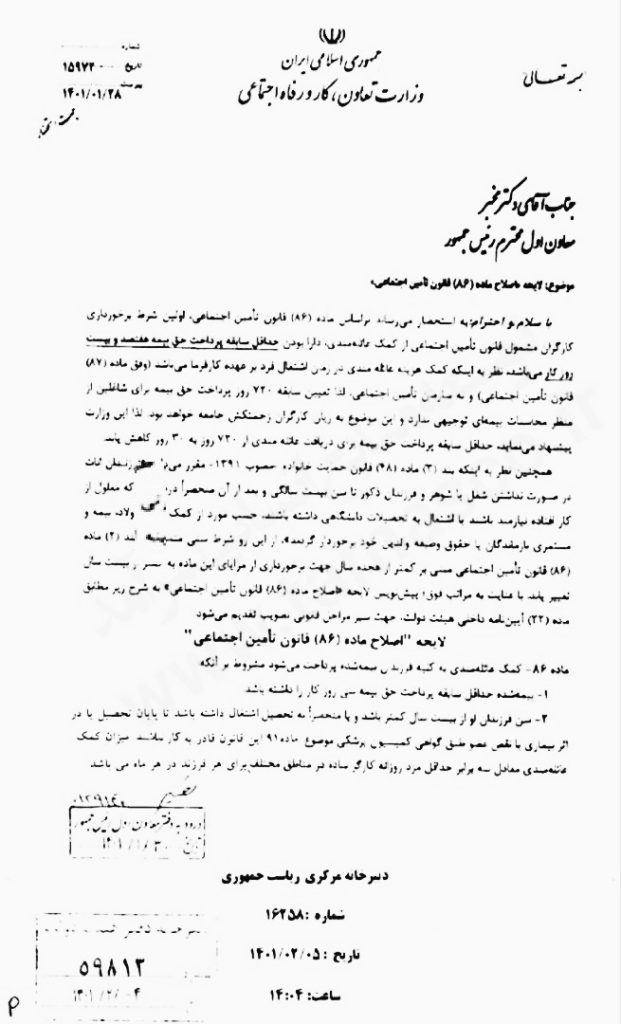 بسمه تعالی
جمهوری اسلامی ایران
وزارت تعاون، کار و رفاه اجتماعی
شماره
تاریخ ۱۵۹۷۲
پیوست
۱۴۰۱/۰۱/۲۸
جناب آقای دکتر مخبر
معاون اول محترم رئیس جمهور
موضوع: لایحه «اصلاح ماده (۸۶) قانون تأمین اجتماعی»
با سلام و احترام؛ به استحضار می‌رساند براساس ماده (۸۶) قانون تأمین اجتماعی، اولین شرط برخورداری
کارگران مشمول قانون تأمین اجتماعی از کمک عائله‌مندی، دارا بودن حداقل سابقه پرداخت حق بیمه هفتصد و بیست
روز کار می‌باشد. نظر به اینکه کمک هزینه عائله مندی در زمان اشتغال فرد بر عهده کارفرما می‌باشد (وفق ماده (۸۷)
قانون تأمین اجتماعی) و نه سازمان تأمین اجتماعی، لذا تعیین سابقه ۷۲۰ روز پرداخت حق بیمه برای شاغلین از
منظر محاسبات بیمه‌ای توجیهی ندارد و این موضوع به زیان کارگران زحمتکش جامعه خواهد بود. لذا این وزارت
پیشنهاد می‌نماید، حداقل سابقه پرداخت حق بیمه برای دریافت عائله مندی از ۷۲۰ روز به ۳۰ روز کاهش یابد.
همچنین نظر به اینکه بند (۳) ماده (۴۸) قانون حمایت خانواده مصوب ۱۳۹۱، مقرر فرزندان اناث
در صورت نداشتن شغل یا شوهر و فرزندان ذکور تا سن بیست سالگی و بعد از آن منحصراً که معلول از
کار افتاده نیازمند باشند یا اشتغال به تحصیلات دانشگاهی داشته باشند، حسب مورد از کمک اولاد، بیمه و
مستمری بازماندگان یا حقوق وظیفه والدین خود برخوردار گردند»، از این رو شرط سنی بند (۲) ماده
(۸۶) قانون تأمین اجتماعی مبنی بر کمتر از هجده سال جهت برخورداری از مزایای این ماده به بیست سال
تغییر یابد. با عنایت به مراتب فوق؛ پیش‌نویس لایحه «اصلاح ماده (۸۶) قانون تأمین اجتماعی» به شرح زیر مطابق
ماده (۲۲) آیین‌نامه داخلی هیئت دولت، جهت سیر مراحل قانونی تصویب تقدیم می‌شود.
لایحه "اصلاح ماده (۸۶) قانون تأمین اجتماعی"
ماده ۸۶- کمک عائله‌مندی به کلیه فرزندان بیمه‌شده پرداخت می‌شود مشروط بر آنکه:
۱- بیمه‌شده حداقل سابقه پرداخت حق بیمه سی روز کار را داشته باشد.
۲- سن فرزندان او از بیست سال کمتر باشد و یا منحصراً به تحصیل اشتغال داشته باشد تا پایان تحصیل یا در
اثر بیماری یا نقص عضو طبق گواهی کمیسیون پزشکی موضوع ماده ۹۱ این قانون قادر به کار نباشند. میزان کمک
عائله‌مندی معادل سه برابر حداقل مزد روزانه کارگر ساده در مناطق مختلف برای هر فرزند در هر ماه می باشد.
ورود به دفتر معاون اول رئیس جمهور
تاریخ ۱۴۰۱/۱/۳۰
دبیرخانه مرکزی ریاست جمهوری
شماره: ۱۶۲۵۸
تاریخ: ۱۴۰۱/۰۲/۰۵
ساعت: ۱۴:۰۴
دبیرخانه دفتر هیئت دولت
۵۹۸۱۳
۱۴۰۱/۲/۰۴